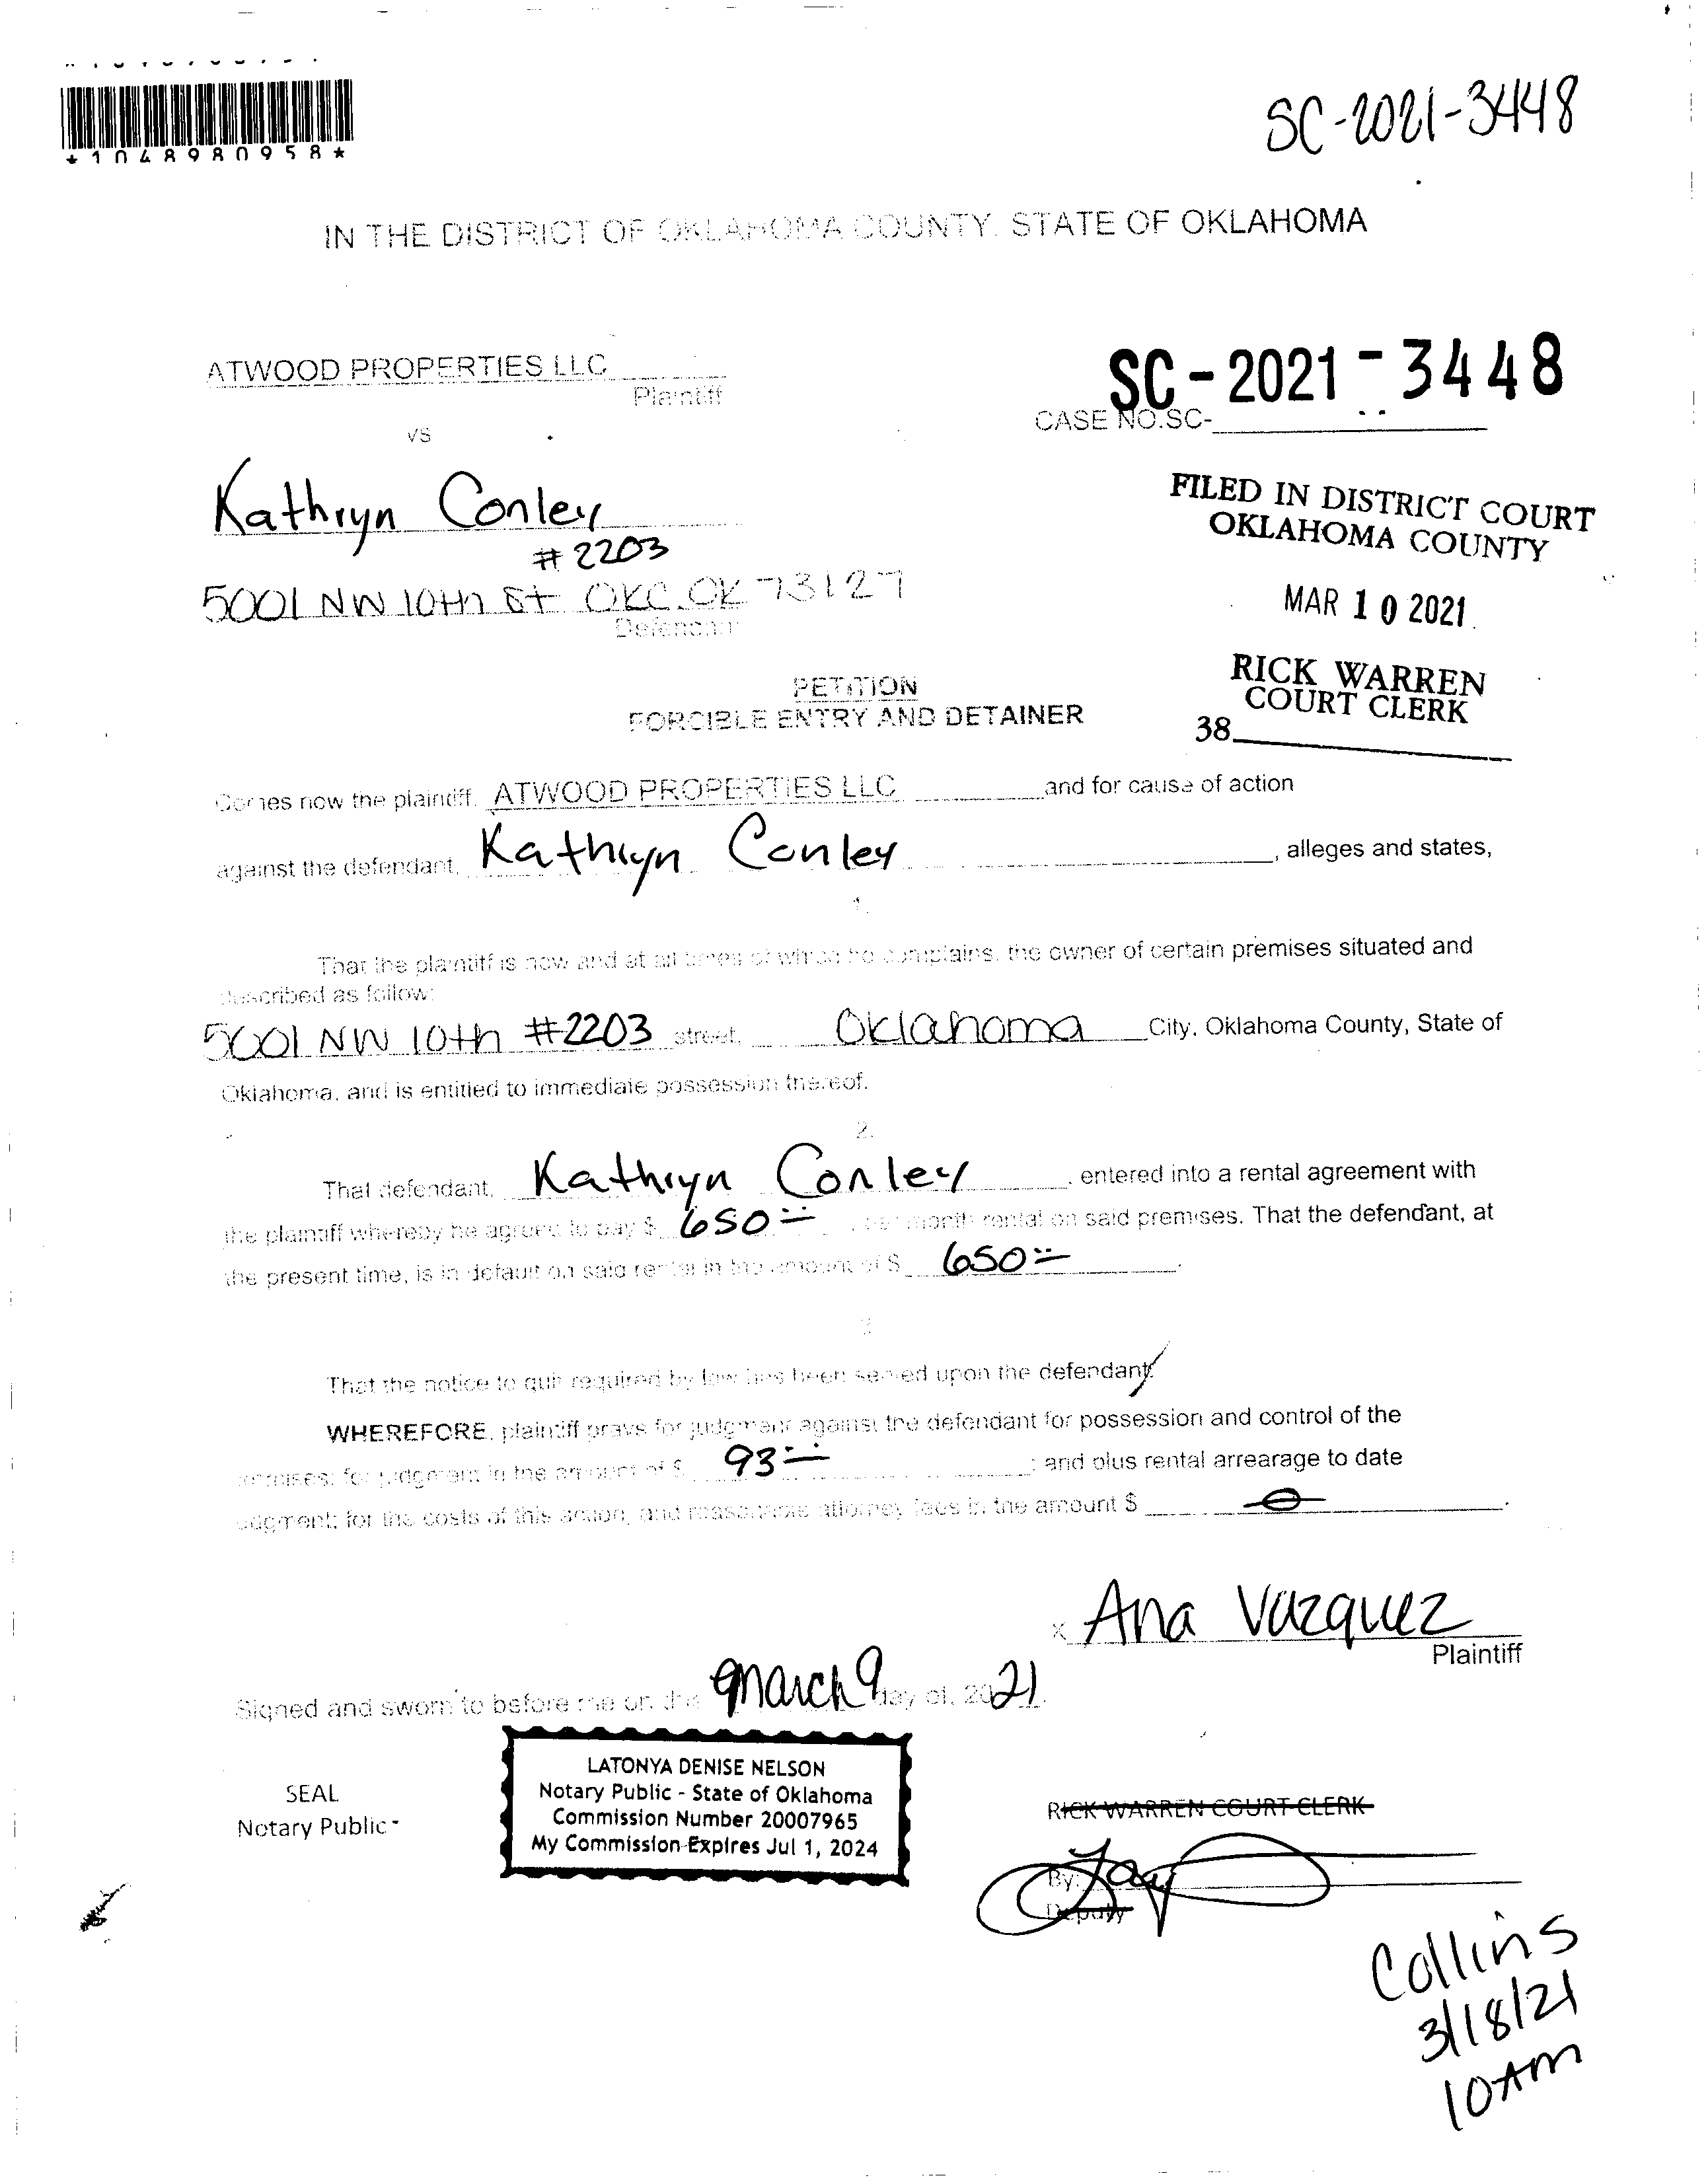 *1048980958*
SC-2021-3448
IN THE DISTRICT OF OKLAHOMA COUNTY, STATE OF OKLAHOMA
ATWOOD PROPERTIES LLC
Plaintiff
SC-2021-3448
CASE NO.SC-
vs
Kathryn Conley
#2203
5001 NW 10th St OKC, OK 73127
Defendant
FILED IN DISTRICT COURT
OKLAHOMA COUNTY
MAR 10 2021
RICK WARREN
COURT CLERK
38
PETITION
FORCIBLE ENTRY AND DETAINER
Comes now the plaintiff, ATWOOD PROPERTIES LLC and for cause of action
against the defendant, Kathryn Conley, alleges and states,
1.
That the plaintiff is now and at all times of which he complains, the owner of certain premises situated and
described as follow:
5001 NW 10th #2203 street, Oklahoma City, Oklahoma County, State of
Oklahoma, and is entitled to immediate possession thereof.
2.
That defendant, Kathryn Conley, entered into a rental agreement with
the plaintiff whereby he agreed to pay $ 650 per month rental on said premises. That the defendant, at
the present time, is in default on said rental in the amount of $ 650.
3
That the notice to quit required by law has been served upon the defendant.
WHEREFORE, plaintiff prays for judgment against the defendant for possession and control of the
premises; for judgment in the amount of $ 93; and plus rental arrearage to date
judgment; for the costs of this action, and reasonable attorney fees in the amount $ 0.
x Ana Vazquez
Plaintiff
Signed and sworn to before me on the March 9 day of, 2021.
SEAL
Notary Public
LATONYA DENISE NELSON
Notary Public - State of Oklahoma
Commission Number 20007965
My Commission Expires Jul 1, 2024
RICK WARREN COURT CLERK
By:
Deputy
Collins
3/18/21
10AM